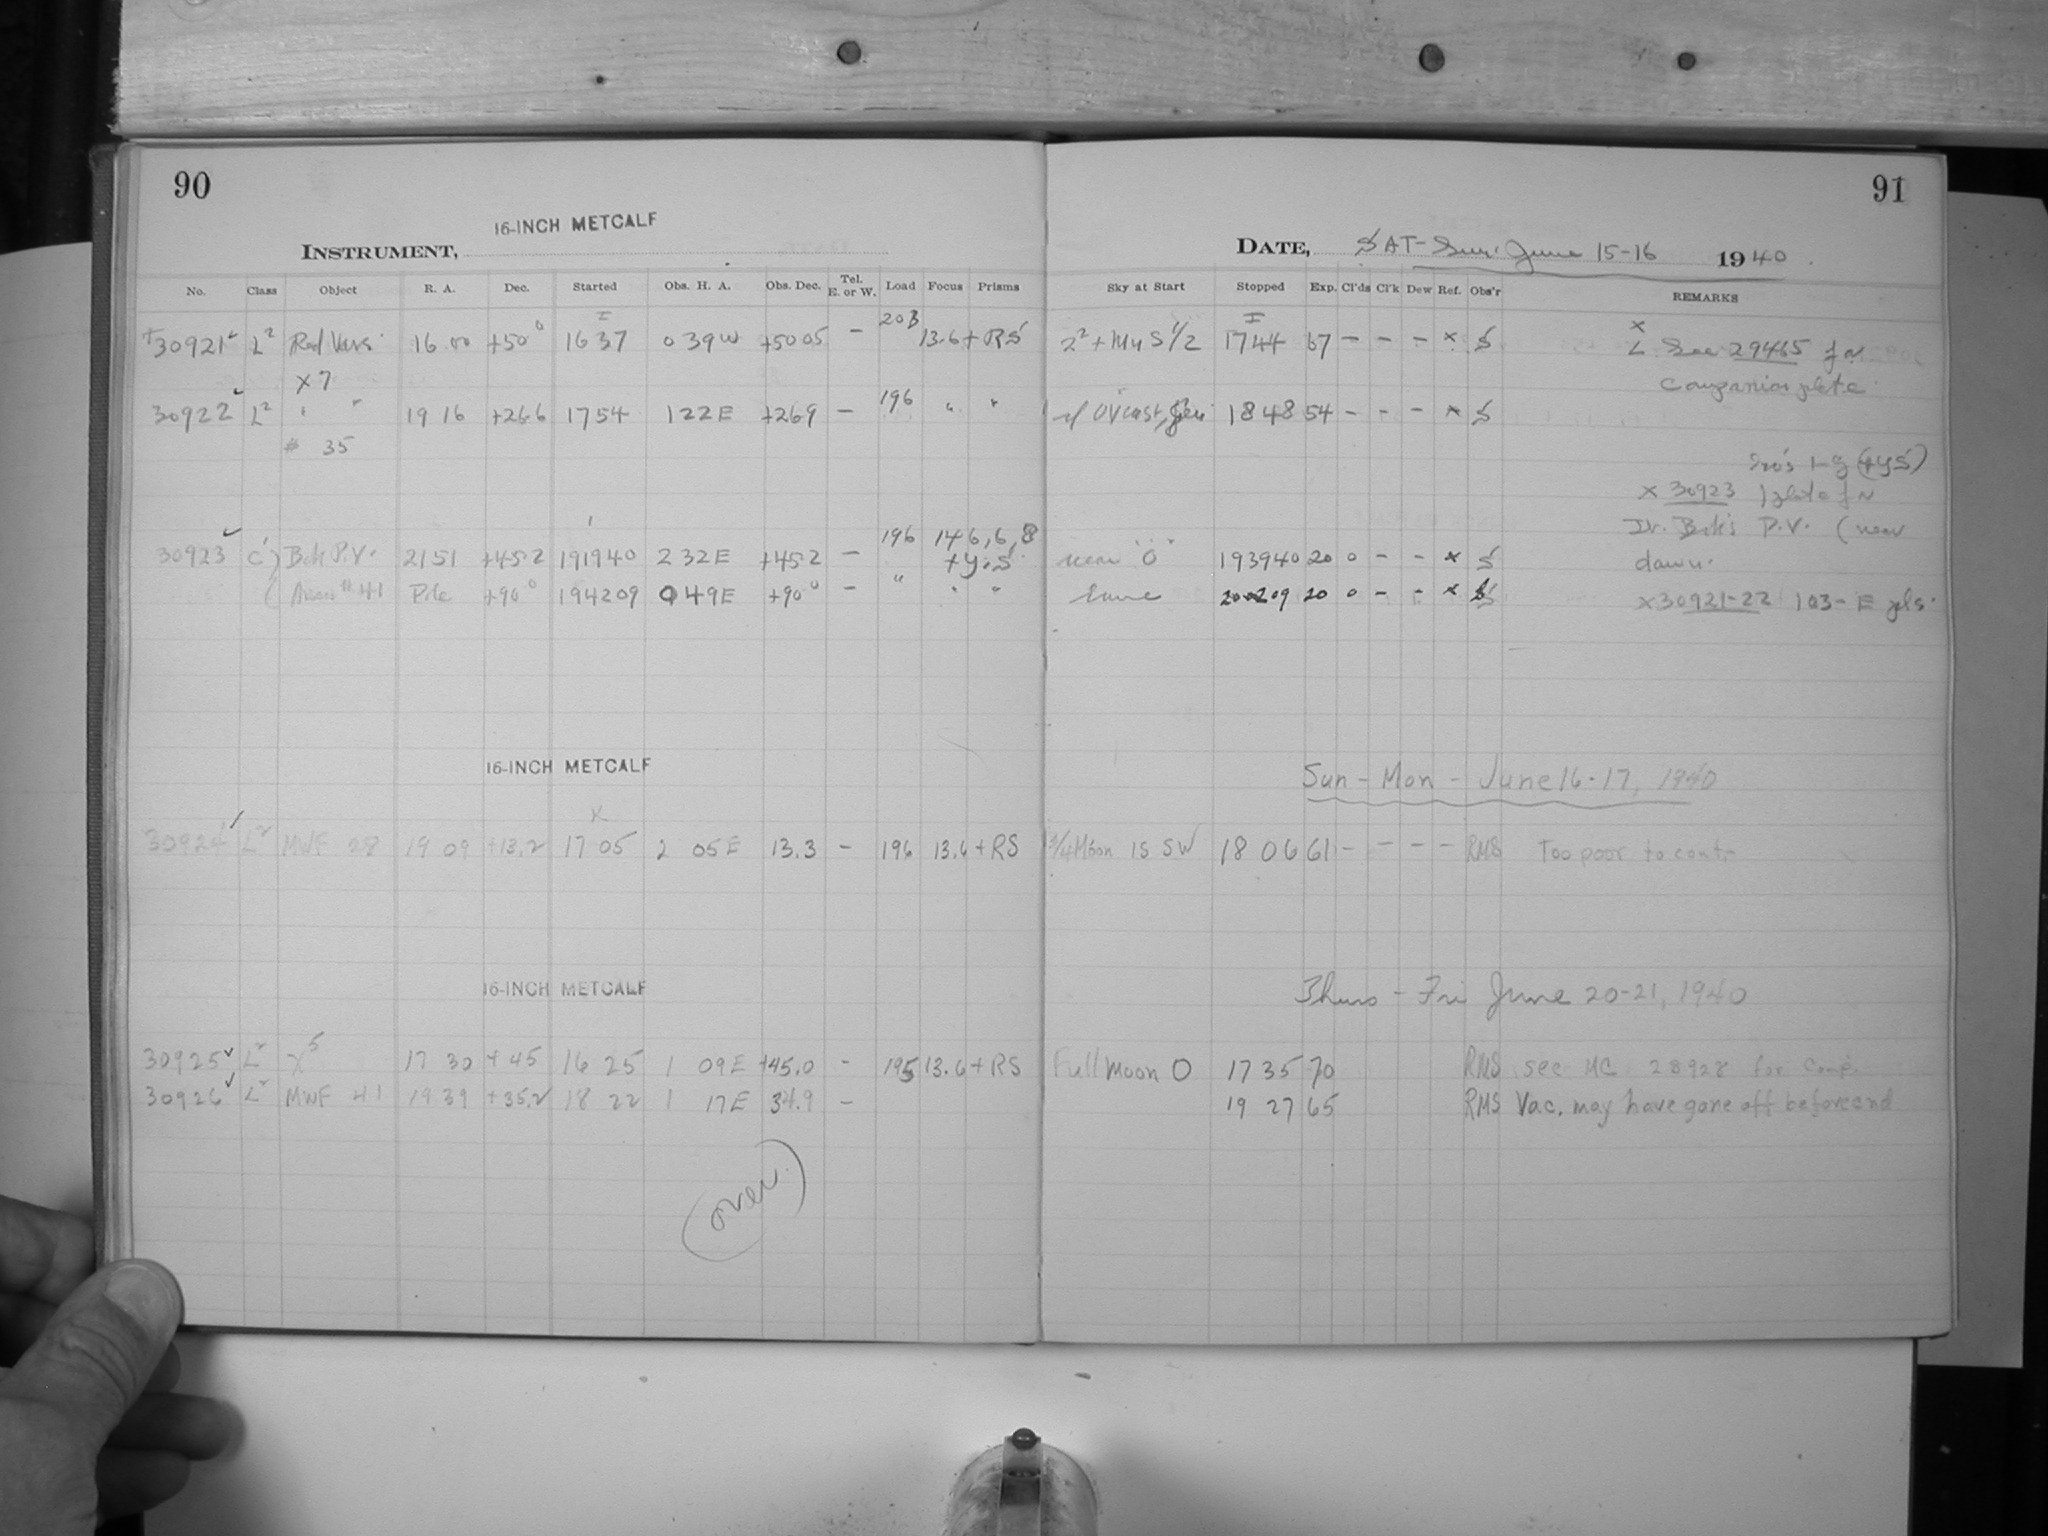 90
16-INCH METCALF
INSTRUMENT,
No. Class Object R. A. Dec. Started Obs. H. A. Obs. Dec. Tel. E. or W. Load Focus Prisms
+30921 L2 Red Vars. 16 00 +50° 16 37 0 39 W +50 05 – 203 13.6 + RS
x 7
30922 L2 " " 19 16 +26.6 17 54 1 22 E +26.9 – 196 " "
# 35
30923 C' Bok P.V. 21 51 +45.2 19 19 40 2 32 E +45.2 – 196 14 6, 6, 8 + y.S
#41 Pole +90° 19 42 09 0 49 E +90° – " " "
16-INCH METCALF
30924 L2 MWF 28 19 09 +13.2 17 05 2 05 E 13.3 – 196 13.6 + RS
16-INCH METCALF
30925 L2 X5 17 30 +45 16 25 1 09 E +45.0 – 195 13.6 + RS
30926 L2 MWF 41 19 39 +35.2 18 22 1 17 E 34.9 –
(over)
91
DATE, SAT – Sun. June 15-16 1940
Sky at Start Stopped Exp. Cl'ds Cl'k Dew Ref. Obs'r REMARKS
17 44 67 – – – x S x See 29465 for
companion plate
18 48 54 – – – x S
x 30923 1 plate for
Dr. Bok's P.V. (near
near "0" 19 39 40 20 0 – – x S dawn.
Same 20 02 09 20 0 – – x S x 30921-22 103-E pls.
Sun – Mon – June 16-17, 1940
3/4 Moon is SW 18 06 61 – – – – RMS Too poor to cont.
Thurs – Fri June 20-21, 1940
Full Moon O 17 35 70 RMS see MC 28928 for Comp.
19 27 65 RMS Vac. may have gone off before end